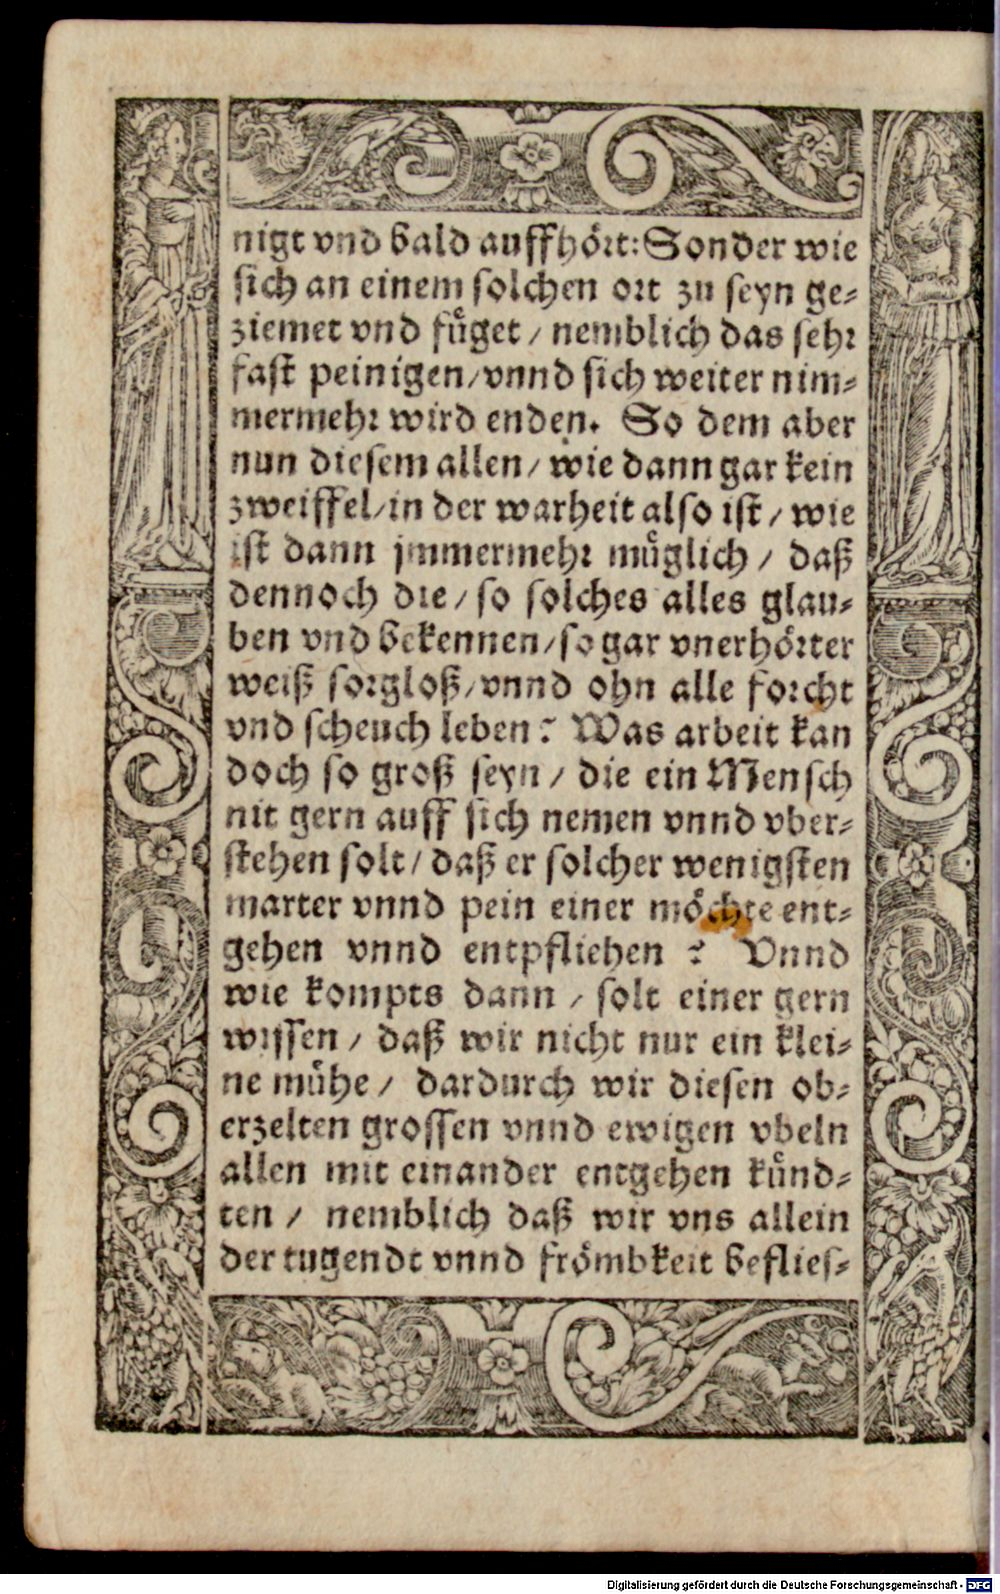 nigt vnd bald auffhört: Sonder wie
sich an einem solchen ort zu seyn ge-
ziemet vnd füget / nemblich das sehr
fast peinigen / vnnd sich weiter nim-
mermehr wird enden. So dem aber
nun diesem allen / wie dann gar kein
zweiffel / in der warheit also ist / wie
ist dann jmmermehr müglich / daß
dennoch die / so solches alles glau-
ben vnd bekennen / so gar vnerhörter
weiß sorgloß / vnnd ohn alle forcht
vnd scheuch leben? Was arbeit kan
doch so groß seyn / die ein Mensch
nit gern auff sich nemen vnnd vber-
stehen solt / daß er solcher wenigsten
marter vnnd pein einer möchte ent-
gehen vnnd entpfliehen? Vnnd
wie kompts dann / solt einer gern
wissen / daß wir nicht nur ein klei-
ne mühe / dardurch wir diesen ob-
erzelten grossen vnnd ewigen vbeln
allen mit einander entgehen künd-
ten / nemblich daß wir vns allein
der tugendt vnnd frömbkeit beflies-
Digitalisierung gefördert durch die Deutsche Forschungsgemeinschaft - DFG